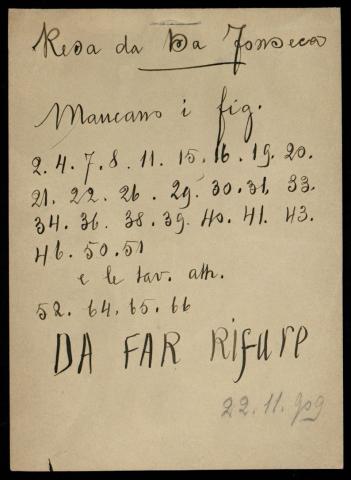 Resa da Da Fonseca
Mancano i fig.
2. 4. 7. 8. 11. 15. 16. 19. 20.
21. 22. 26. 29. 30. 31. 33.
34. 36. 38. 39. 40. 41. 43.
46. 50. 51
e le tav. att.
52. 64. 65. 66
DA FAR Rifare
22. 11. 909